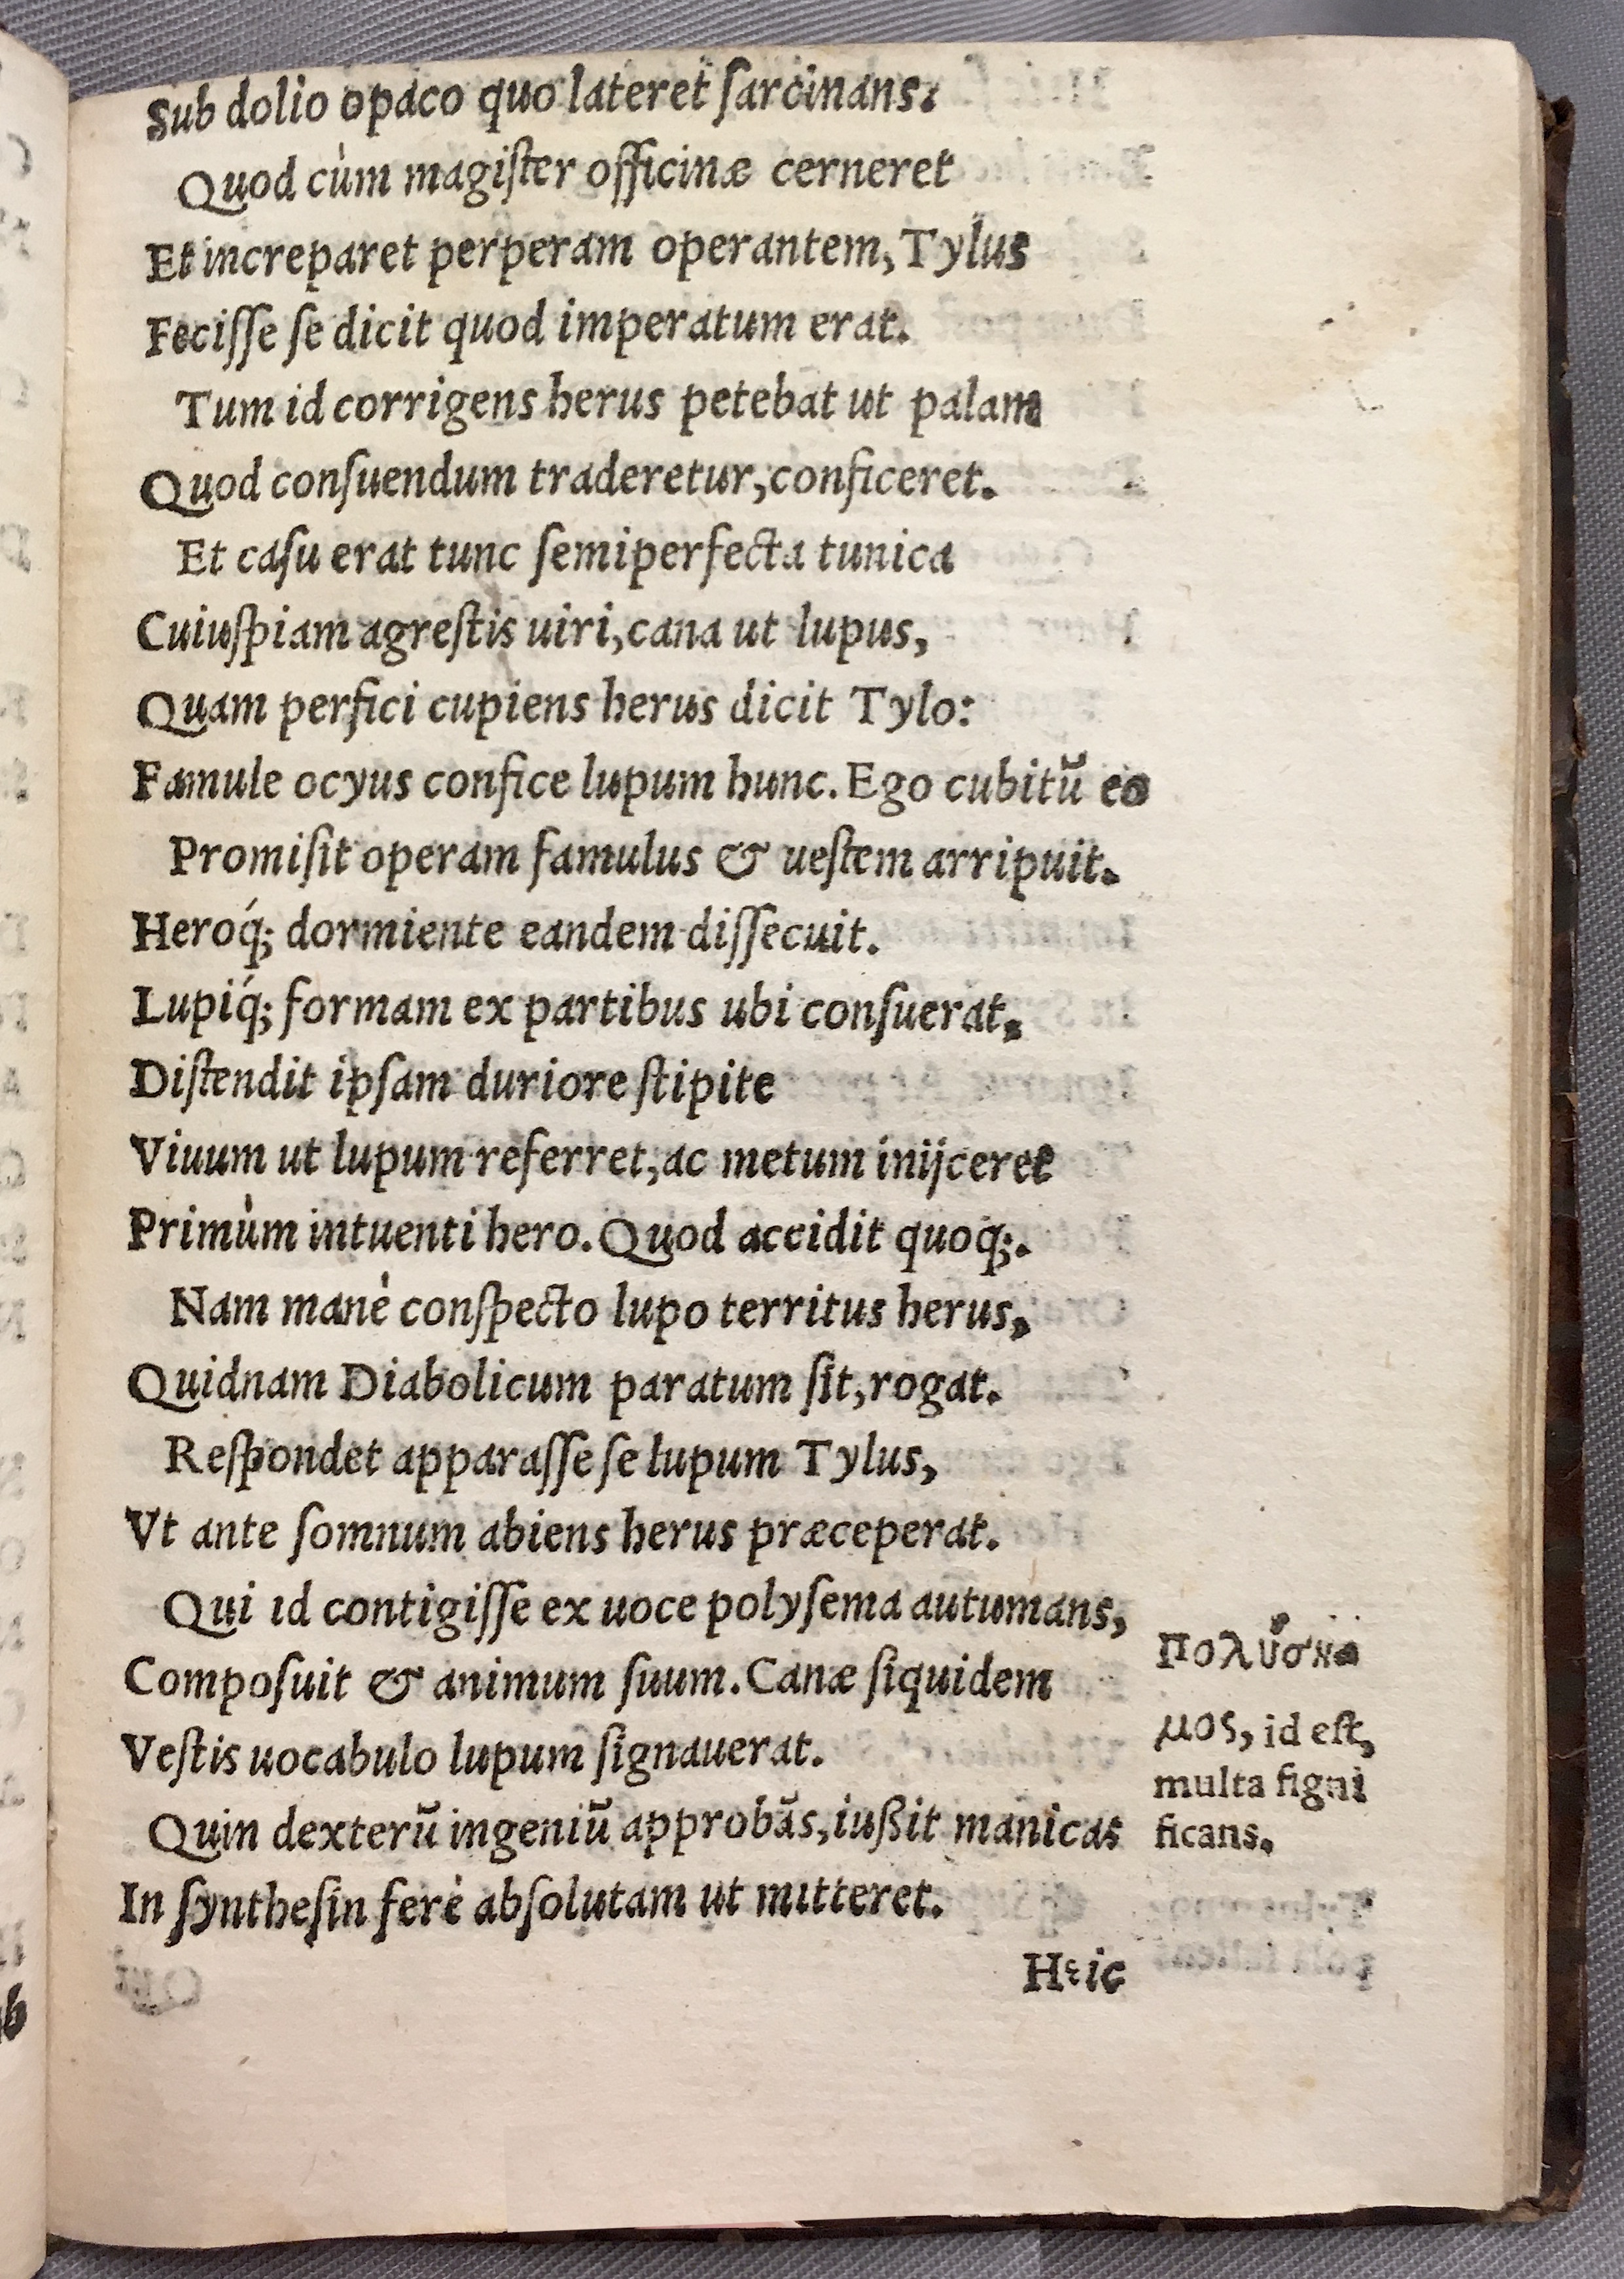 Sub dolio opaco quo lateret ſarcinans.
Quod cùm magiſter officinæ cerneret
Et increparet perperam operantem, Tylus
Feciſſe ſe dicit quod imperatum erat.
Tum id corrigens herus petebat ut palam
Quod conſuendum traderetur, conficeret.
Et caſu erat tunc ſemiperfecta tunica
Cuiuſpiam agreſtis uiri, cana ut lupus,
Quam perfici cupiens herus dicit Tylo:
Famule ocyus confice lupum hunc. Ego cubitū eo
Promiſit operam famulus & ueſtem arripuit.
Heroq́; dormiente eandem diſſecuit.
Lupiq́; formam ex partibus ubi conſuerat,
Diſtendit ipſam duriore ſtipite
Viuum ut lupum referret, ac metum inijceret
Primùm intuenti hero. Quod accidit quoq;.
Nam manè conſpecto lupo territus herus,
Quidnam Diabolicum paratum ſit, rogat.
Reſpondet apparaſſe ſe lupum Tylus,
Vt ante ſomnum abiens herus præceperat.
Qui id contigiſſe ex uoce polyſema autumans,
Compoſuit & animum ſuum. Canæ ſiquidem
Veſtis uocabulo lupum ſignauerat.
Quin dexterū ingeniū approbãs, iußit manicas
In ſyntheſin ferè abſolutam ut mitteret.
Heic
Πολύση
μος, id eſt,
multa ſigni
ficans.